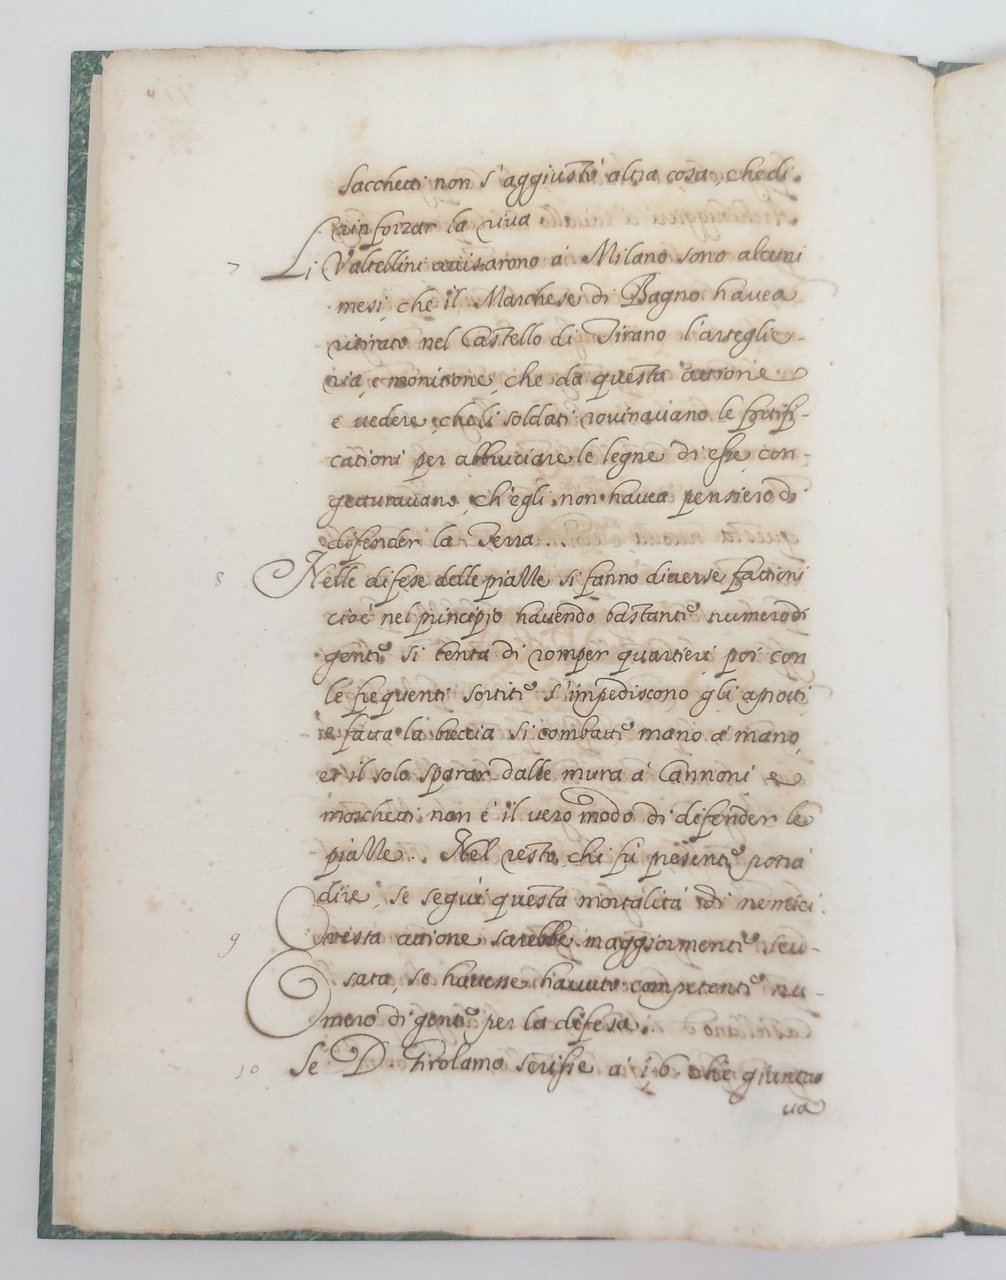 Sacchetti non s'aggiustò altra cosa, che di
rinforzar la riva
7 Li Valtellini avisarono à Milano sono alcuni
mesi, che il Marchese di Bagno havea
ritirato nel Castello di Tirano l'arteglie-
ria, e monitione, che da questa attione
e vedere, che li soldati rovinavano le fortifi-
cationi per abbruciare le legne di esse con-
getturavano, ch'egli non havea pensiero di
difender la Terra.
8 Nelle difese delle piazze si fanno diverse fattioni
cioè nel principio havendo bastante numero di
gente si tenta di romper quartieri poi con
le frequenti sortite s'impediscono gli aprocci
e fatta la breccia si combatte mano à mano,
et il solo sparar dalle mura à Cannoni e
moschetti non è il vero modo di difender le
piazze. Nel resto, chi fù presente potrà
dire, se seguì questa mortalità di nemici.
9 Questa attione sarebbe maggiormente scu-
sata, se havesse havuto competente nu-
mero di gente per la difesa.
10 Se D. Girolamo scrisse à 16 che giunta
va